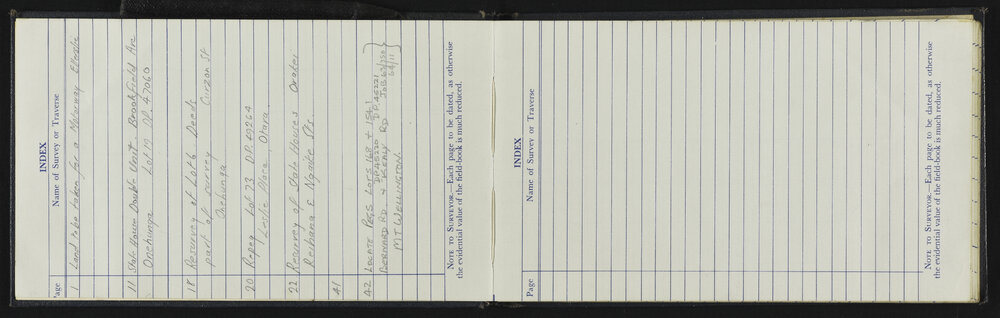 INDEX
Page Name of Survey or Traverse
1 Land to be taken for a Motorway Ellerslie
11 State House Double Unit. Brookfield Ave
Onehunga Lot 19 DP 47060
18 Resurvey of Lot 6 Deeds
part of survey Curzon St
Onehunga
20 Repeg Lot 23 D.P.
Leslie Place, Otara
22 Resurvey of State Houses Orakei
Reihana & Ngaiwi Sts
41
42 LOCATE PEGS LOTS 168 & 154
DP 45220 DP. 45221
BERNARD RD. & KEALY RD JOB 63/350
64/11
MT WELLINGTON.
NOTE TO SURVEYOR.—Each page to be dated, as otherwise
the evidential value of the field-book is much reduced.
INDEX
Page Name of Survey or Traverse
NOTE TO SURVEYOR.—Each page to be dated, as otherwise
the evidential value of the field-book is much reduced.